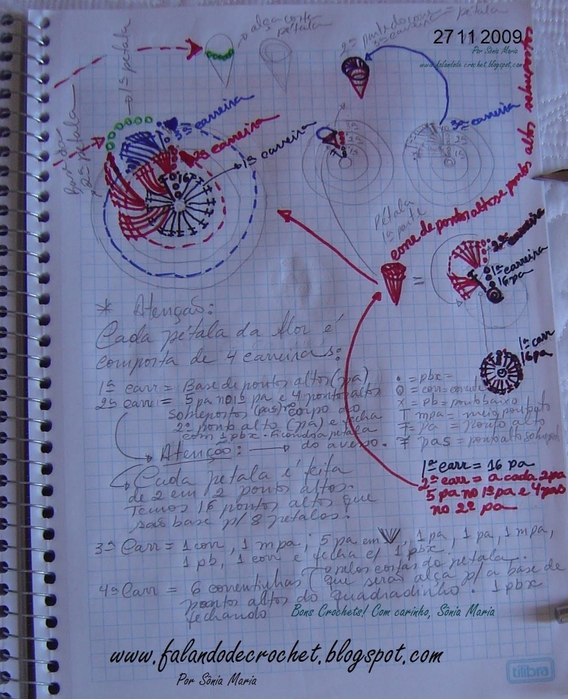 27 11 2009
Por Sônia Maria
www.falandodecrochet.blogspot.com
alça costa
pétala
2º ponto do
= pétala
1ª pétala
3ª carreira
2ª carreira
1ª carreira
3ª carreira
pétala
1ª parte
cone de pontos altos e pontos altos sobrepostos
=
3ª carreira
1ª carreira
16 pa
1ª carr
16 pa
* Atenção:
Cada pétala da flor é
composta de 4 carreiras:
1ª carr = Base de pontos altos (pa)
2ª carr = 5 pa no 1º pa e 4 pontos altos
sobrepostos (pas) no corpo do
2º ponto alto (pa) e fecha
com 1 pbx - pétala
Atenção: do avesso.
Cada pétala é feita
de 2 em 2 pontos altos.
Temos 16 pontos altos que
são base p/ 8 pétalas.
• = pbx =
o = corr = corrente
x = pb = ponto baixo
T mpa = meio ponto alto
= pa = ponto alto
= pas = ponto alto sobreposto
1ª carr = 16 pa
2ª carr = a cada 2 pa
5 pa no 1º pa e 4 pas
no 2º pa
3ª Carr = 1 corr, 1 mpa, 5 pa em , 1 pa, 1 pa, 1 mpa,
1 pb, 1 corr e fecha c/ 1 pbx
pelas costas da pétala.
4ª Carr = 6 correntinhas (que será alça p/ a base de
pontos altos do quadradinho. 1 pbx
fechando
Bons Crochets! Com carinho, Sônia Maria
www.falandodecrochet.blogspot.com
Por Sônia Maria
tilibra